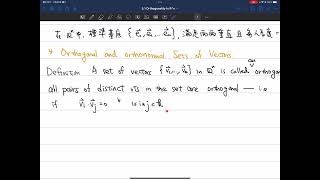 在 ℝⁿ 中, 標準基底 {e⃗₁, e⃗₂, … e⃗ₙ}, 滿足兩兩垂直且
* Orthogonal and orthonormal Sets of Vectors.
Definition A set of vectors {v⃗₁, … v⃗ₖ} in ℝⁿ is called orthogonal
all pairs of distinct vts in the set are orthogonal — i.e
if v⃗ᵢ · v⃗ⱼ = 0